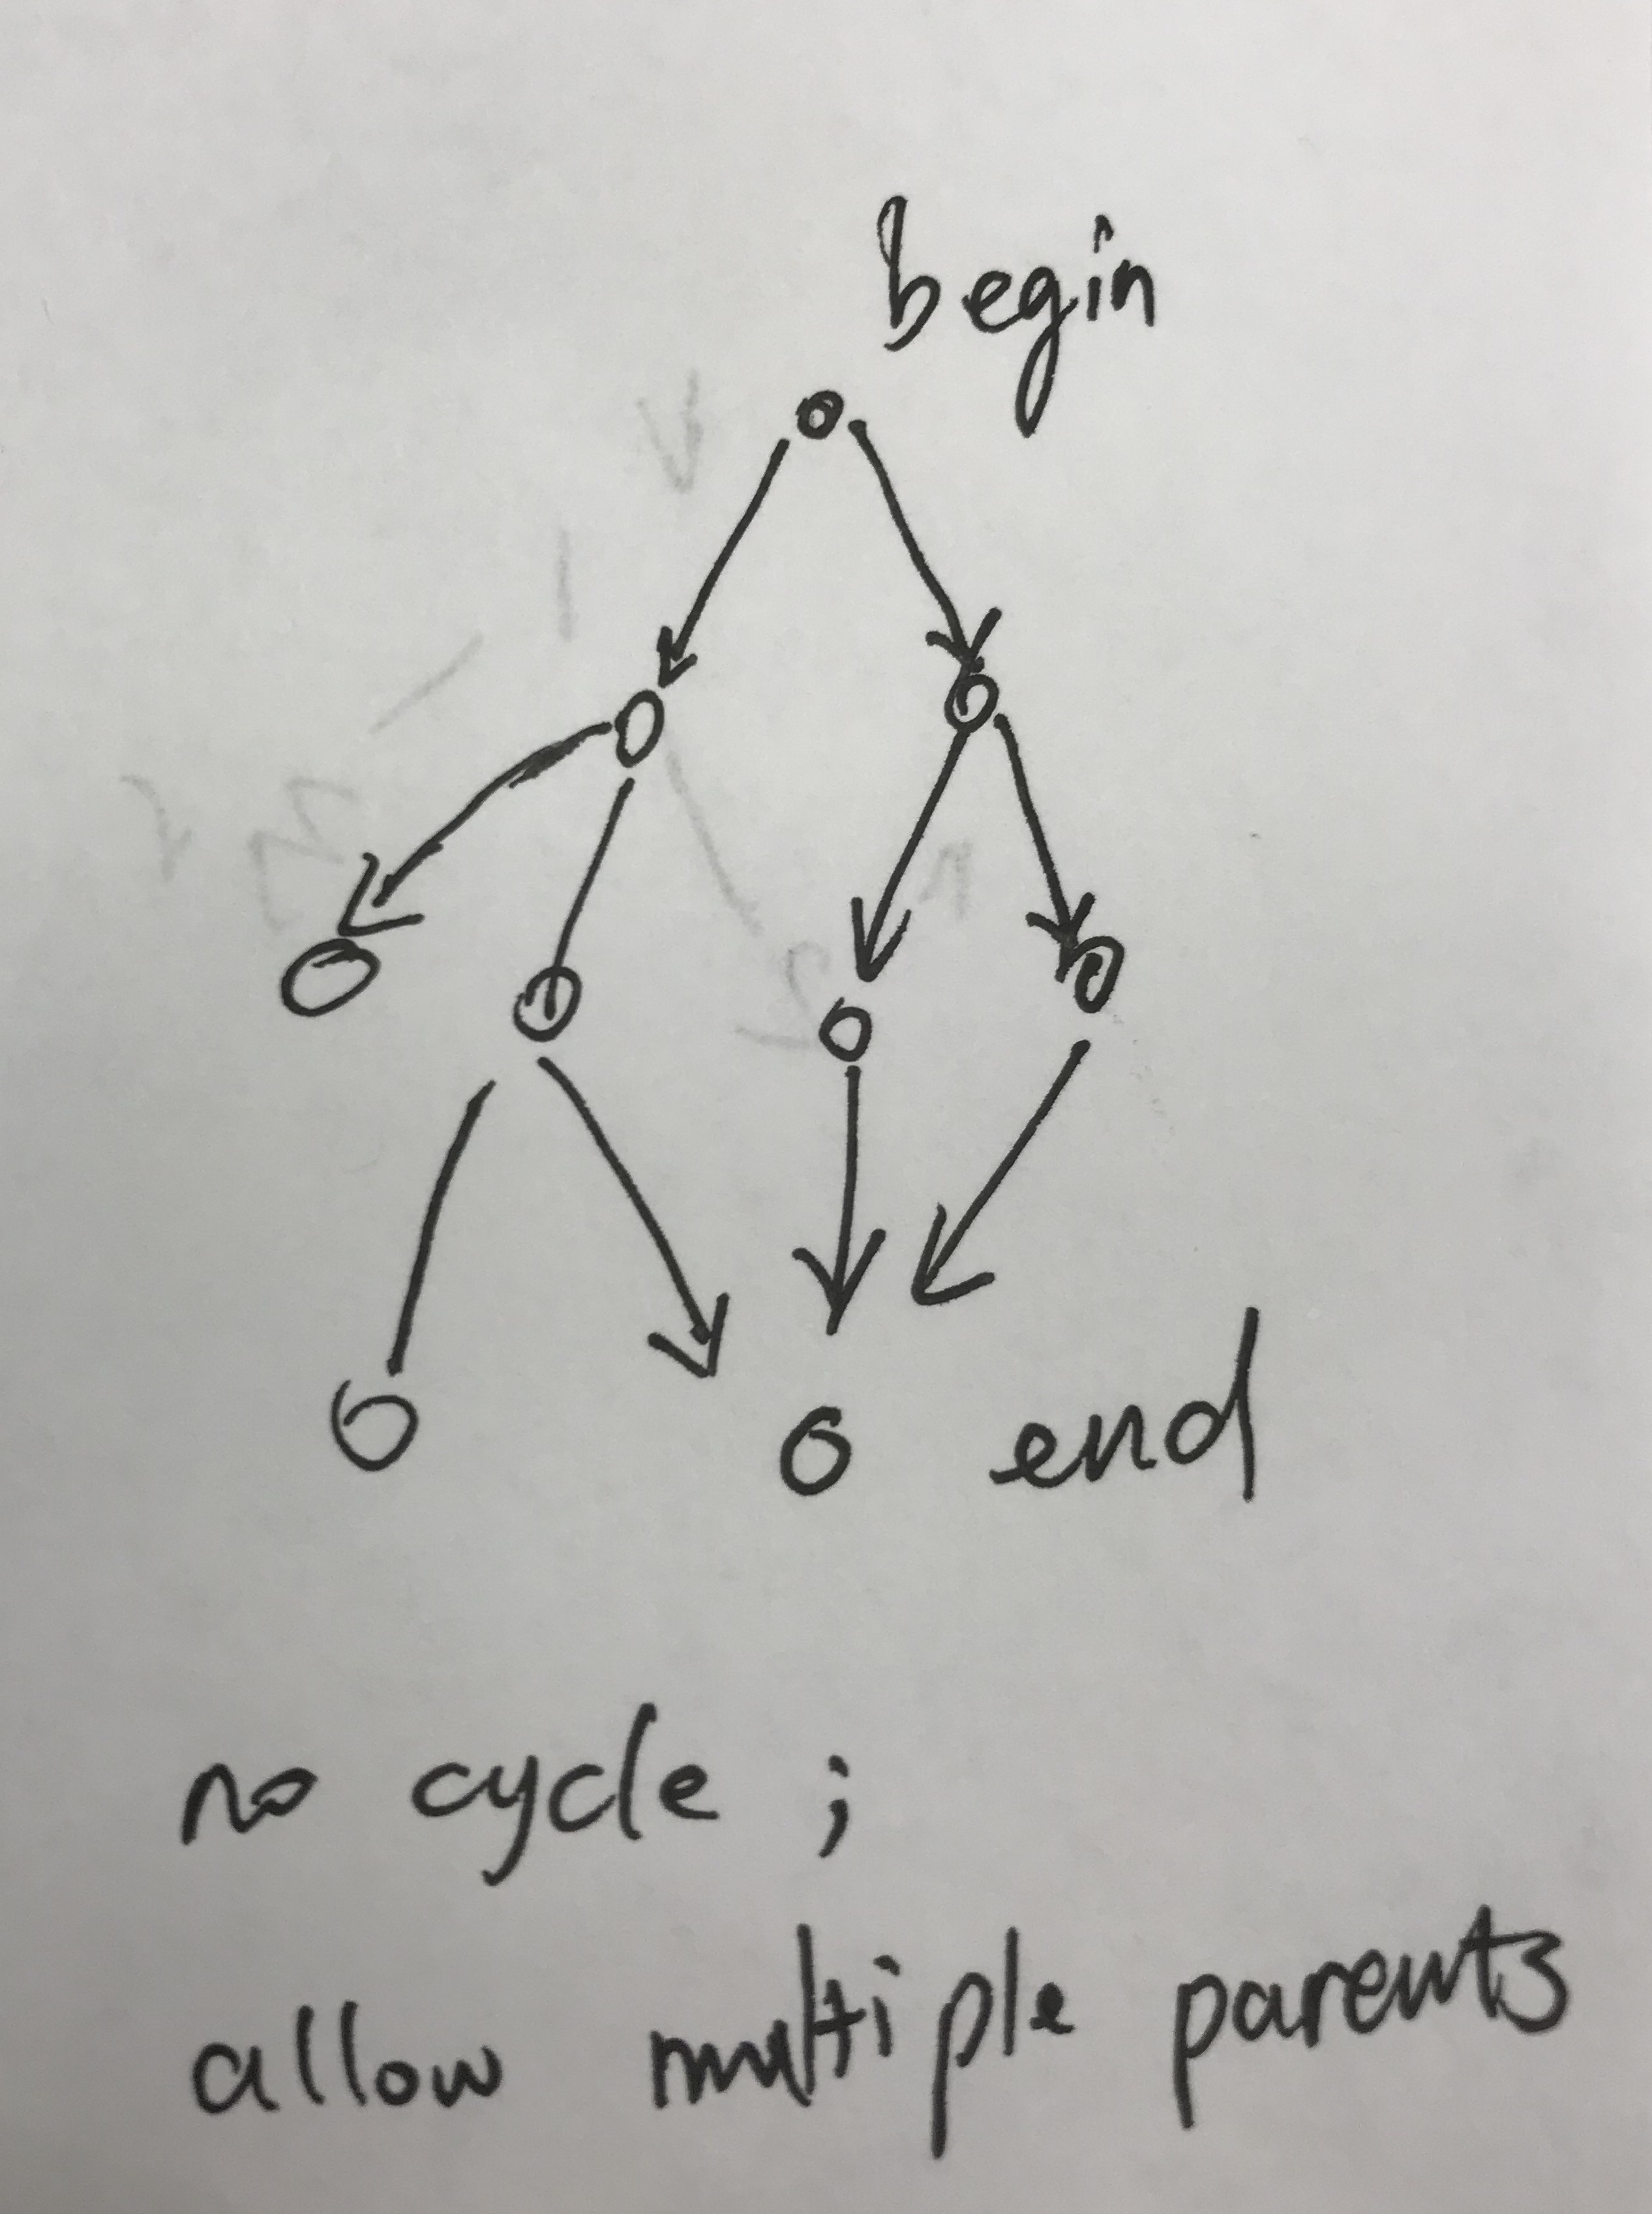 begin
end
no cycle ;
allow multiple parents